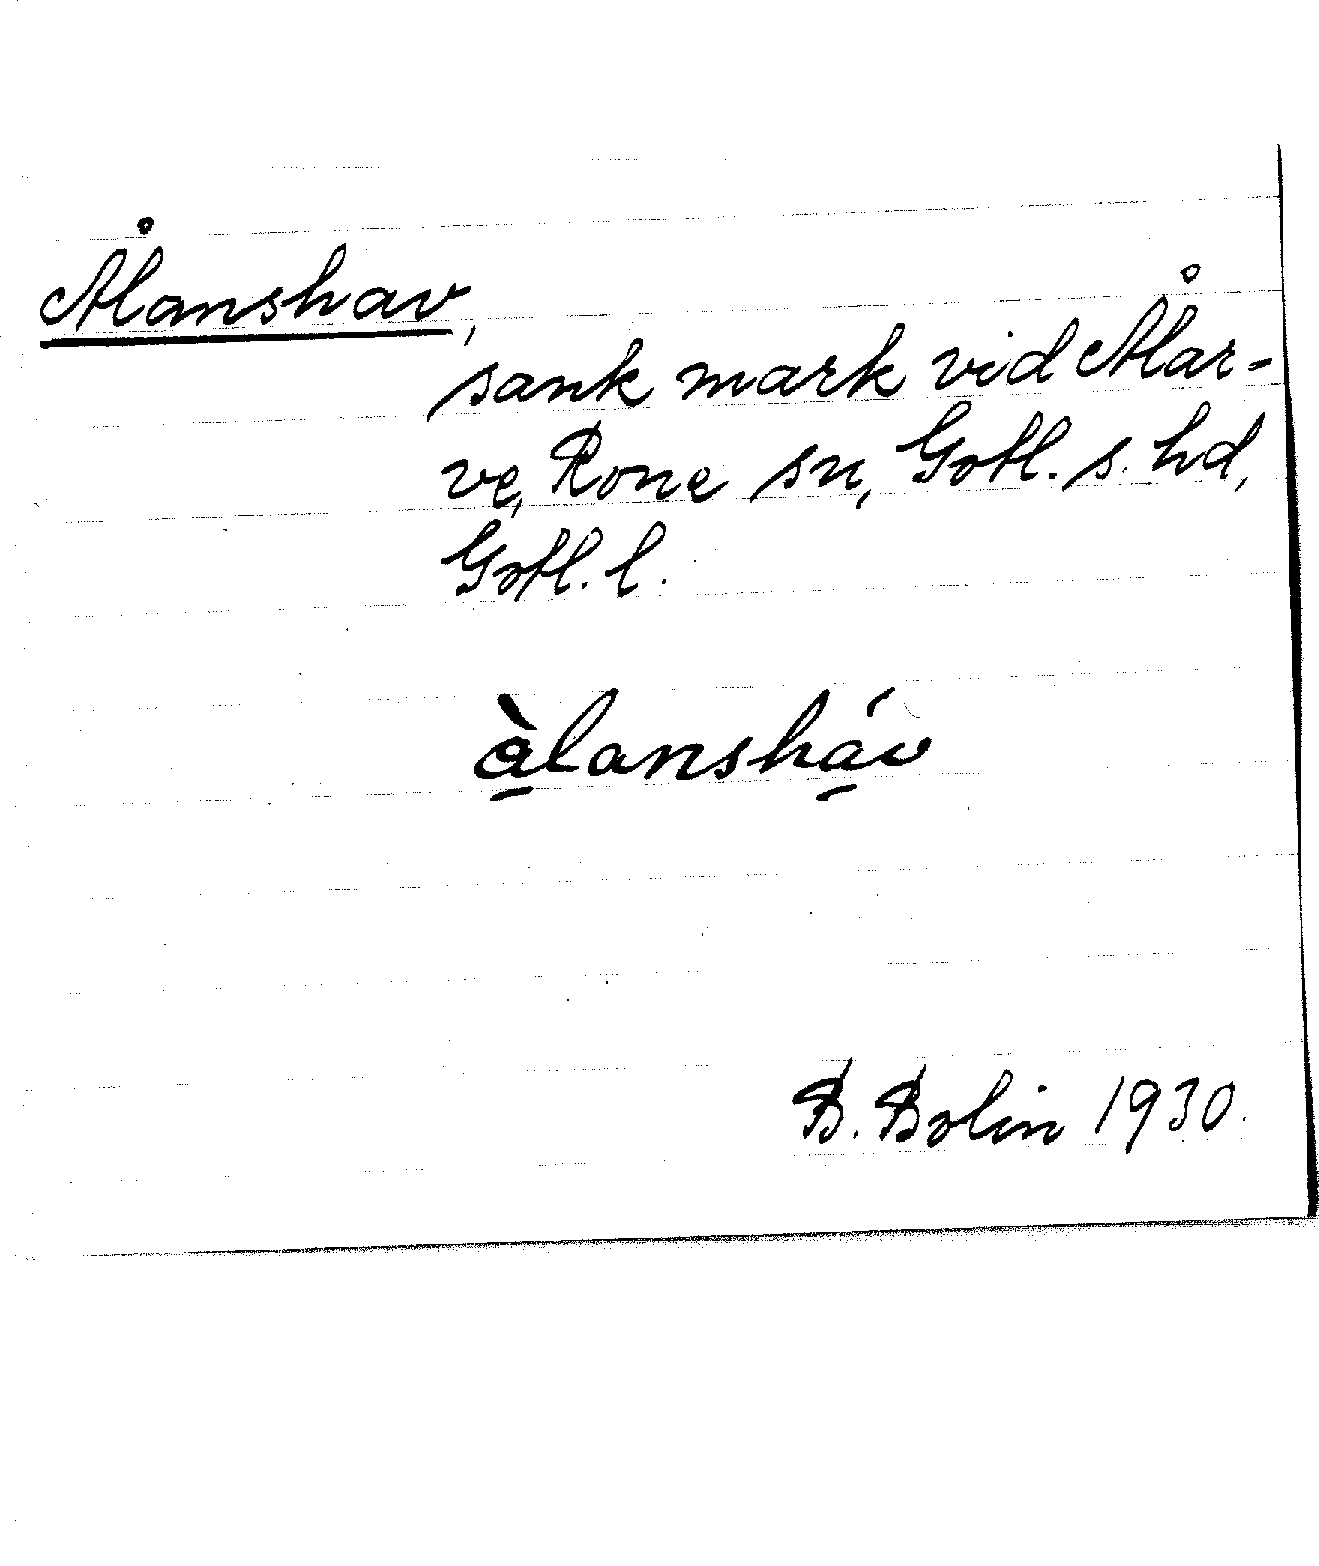 Ålanshav,
sank mark vid Ålar-
ve, Rone sn, Gotl. s. hd,
Gotl. l.
à̱lanshá̱v
B. Bolin 1930.